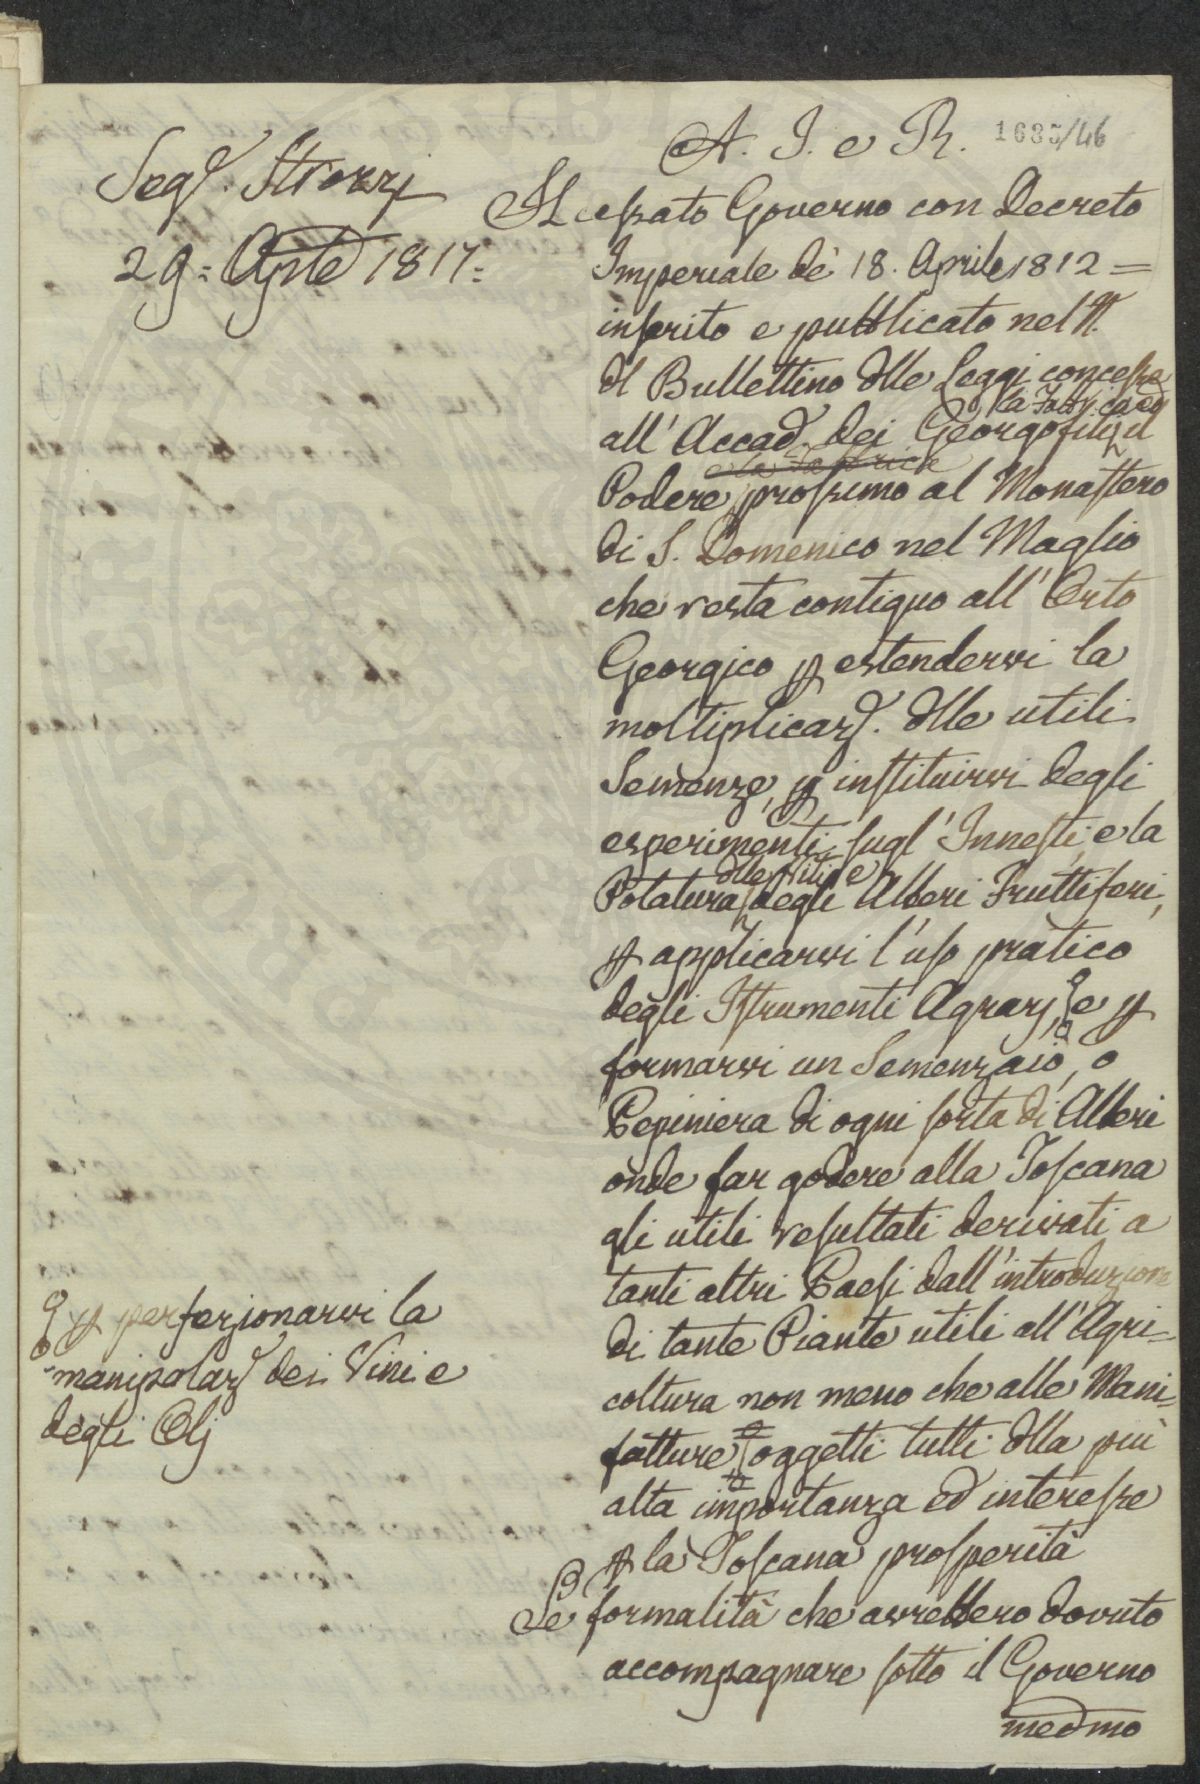 A. I. e R. 1685/46
Seg.ᵒ Strozzi
29 = Agste 1817 =
Il cessato Governo con Decreto
Imperiale de' 18. Aprile 1812 =
inserito e pubblicato nel N.
dl Bullettino dlle Leggi concesse
la Fabbrica ed
all' Accad. dei Georgofili, il
e la Fabbrica
Podere prossimo al Monastero
di S. Domenico nel Maglio
che resta contiguo all' Orto
Georgico p estendervi la
moltiplicaz. dlle utili
Semenze, p instituirvi degli
esperimenti sugl' Innesti, e la
dlle Viti, e
Potatura degli Alberi Fruttiferi,
p applicarvi l'uso pratico
degli Istrumenti Agrarj, e p
formarvi un Semenzaio, o
Pepiniera di ogni sorta di Alberi
onde far godere alla Toscana
gli utili resultati derivati a
tanti altri Paesi dall' introduzione
di tante Piante utili all' Agri=
coltura non meno che alle Mani=
fatture, oggetti tutti dlla più
alta importanza ed interesse
p la Toscana prosperità
p perfezionarvi la
manipolaz dei Vini e
degli Olj
Le formalità che avrebbero dovuto
accompagnare sotto il Governo
medmo